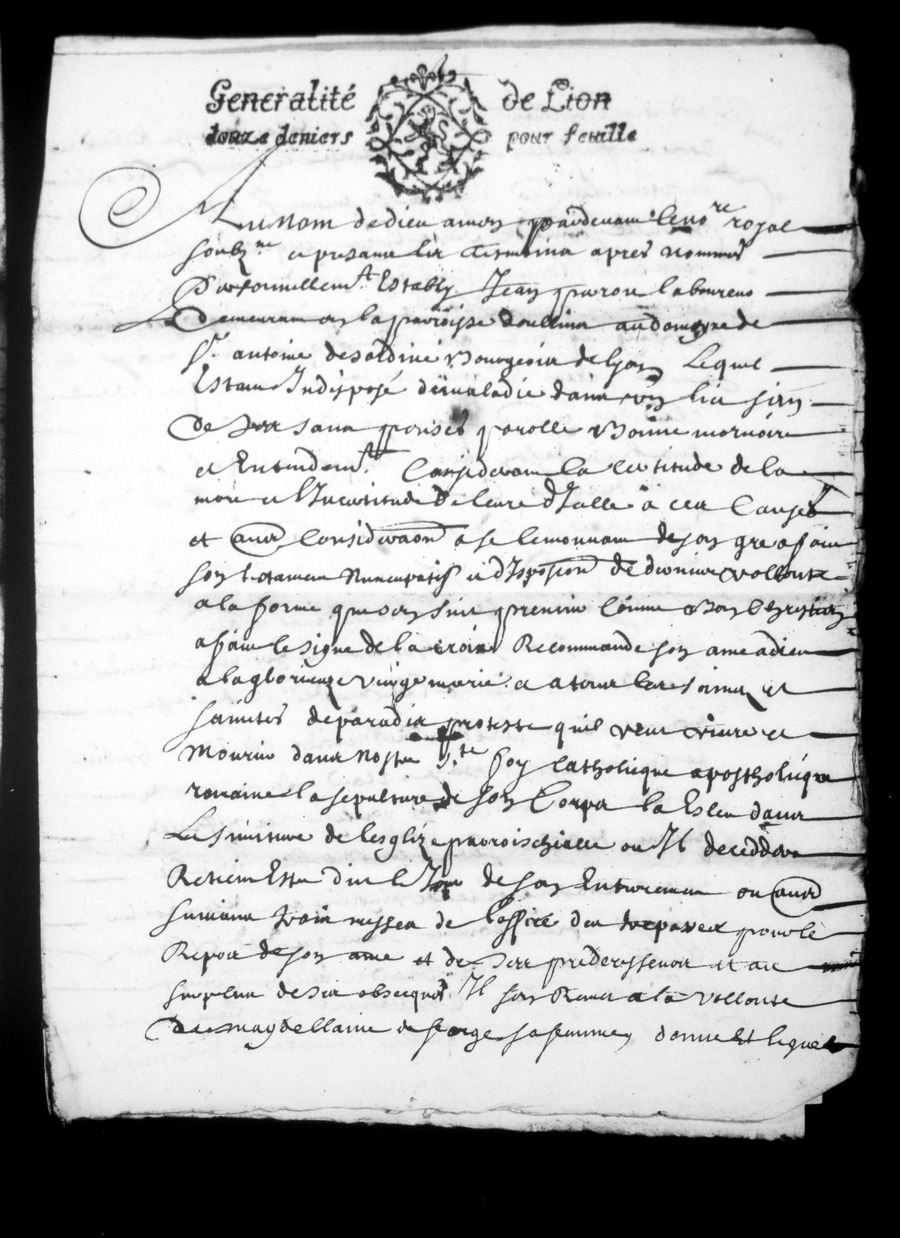 Generalité de Lion
douze deniers pour feuille
Au Nom de dieu amen pardevant le no.re royal
soubz.ne et presans les tesmoins apres nommes
Personnellem.t Estably Jean paron laboureus
Demeurant en la parroisse doullins au domeyne de
S.r antoine desaldine Bourgeois de Lyon Lequel
Estant Indisposé de maladie dans son lict sain
De ses sans pensee parolle Bonne memoire
et Entendem.t Considerant la certitude de la
mort et l'Incertitude de leure d'Icelle a ces Causes
et aus Consideraōn a se le mouvant de son gre a faict
son testament Nuncupatif et dispōsion de derniere vollonte
a la forme que sen suit premier Comme Bon Chrestien
a faict le signe de la croix Recommande son ame a dieu
a la glorieuze vierge marie et a tous les sainctz et
sainctes de paradis proteste quil veut vivre et
Mourir dans nostre s.te foy Catholique apostholique
romaine la sepulture de son Corps la Esleu dans
Le simitiere de lesglize parroischialle ou Il deceddera
Estre dit le Jour de son Enterrement ou aux
suivans trois messes de l'office des trepasses pour le
Repos de son ame et de ses predecesseurs et au
surplus de ses obseques Il sen Remet a la vollonte
De magdellaine de forge sa femme donne Et legue